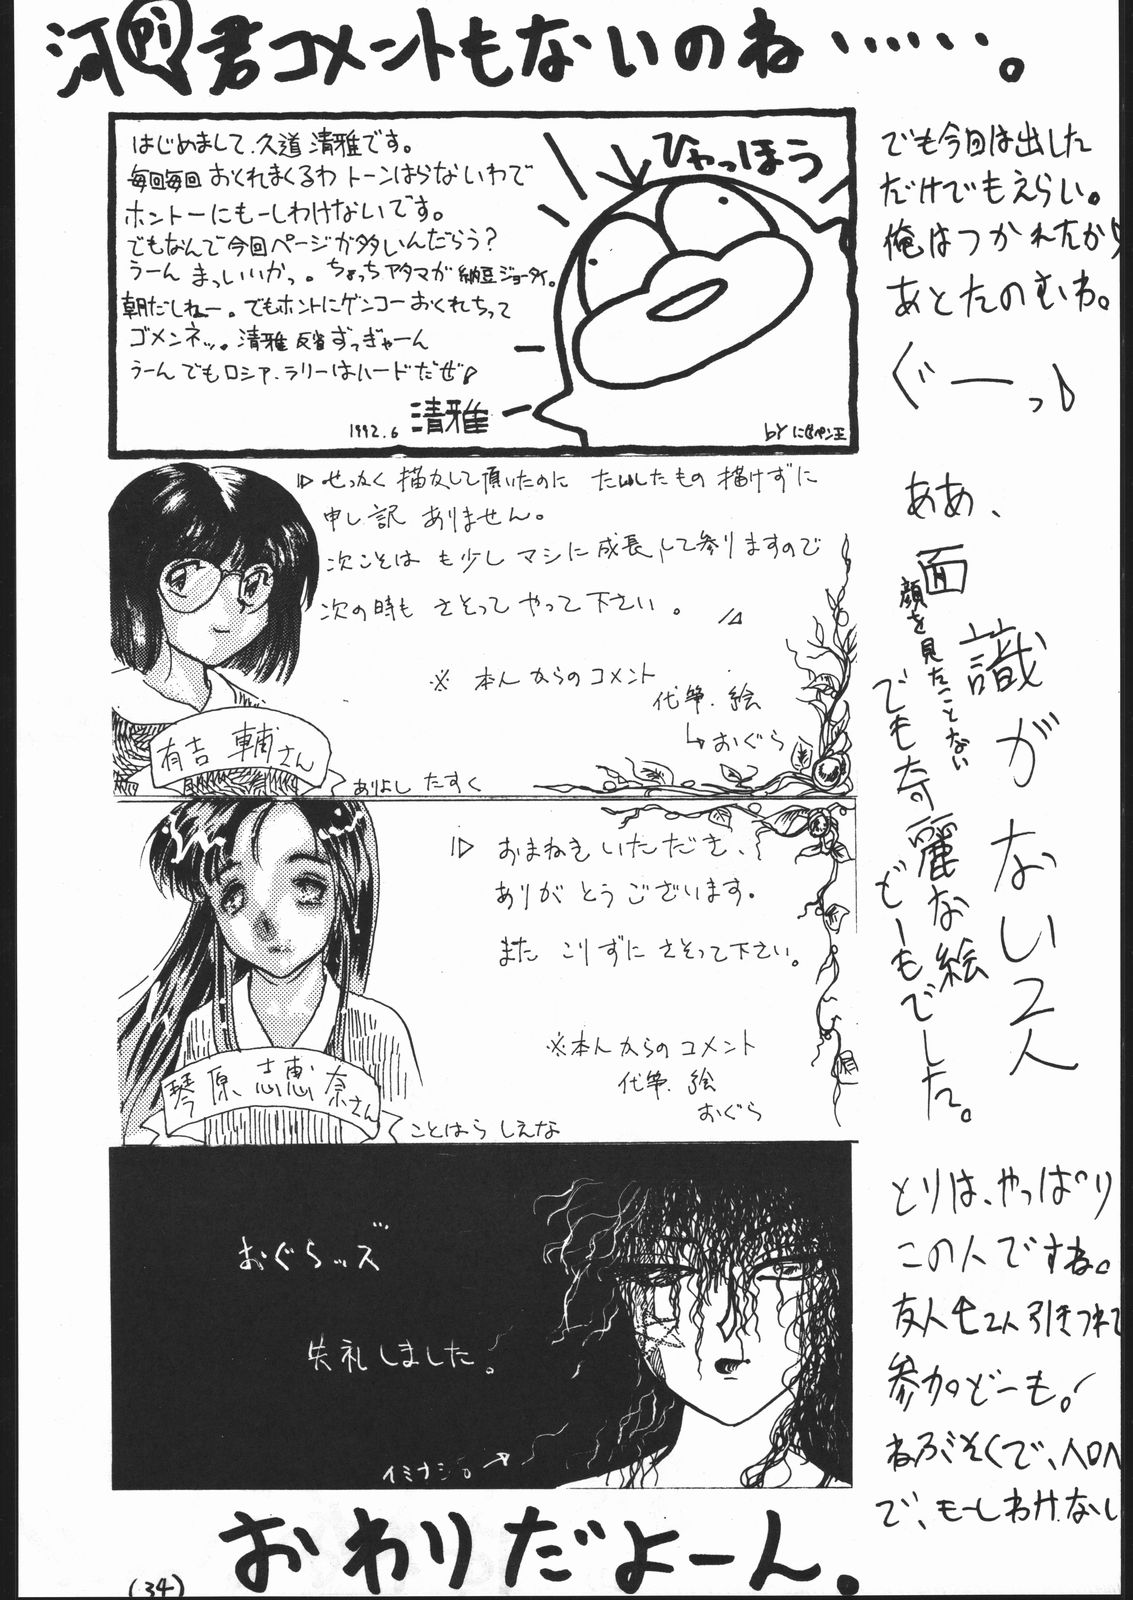 河合君コメントもないのね……。
はじめまして、久道清雅です。
毎回毎回おくれまくるわトーンはらないわで
ホントーにもーしわけないです。
でもなんで今回ページが多いんだらう?
うーん まっいいかっ。ちょっちアタマが納豆ジョータイ。
朝だしねー。でもホントにゲンコーおくれちって
ゴメンネッ。清雅反省ずっぎゃーん
うーんでもロシア.ラリーはハードだぜ♪
1992.6 清雅
ひゃっほう
by にせペン王
でも今回は出した
だけでもえらい。
俺はつかれたから
あとたのむわ。
ぐーっ♪
せっかく描かして頂いたのに たいしたもの描けずに
申し訳ありません。
次こそは も少しマシに成長して参りますので
次の時も さそってやって下さい。
※本人からのコメント
代筆.絵
↳おぐら
有吉 輔さん
ありよし たすく
ああ、
面識がない2人
顔を見たことない
でも奇麗な絵
どーもでした。
おまねきいただき、
ありがとうございます。
また こりずに さそって下さい。
※本人からのコメント
代筆.絵
おぐら
琴原 志恵奈さん
ことはら しえな
おぐらッズ
失礼しました。
イミナシ。
とりは、やっぱり
この人ですね。
友人を2人引きつれて
参加どーも!
ねぶそくで、ヘロヘロ
で、もーしわけなし
おわりだよーん。
(34)